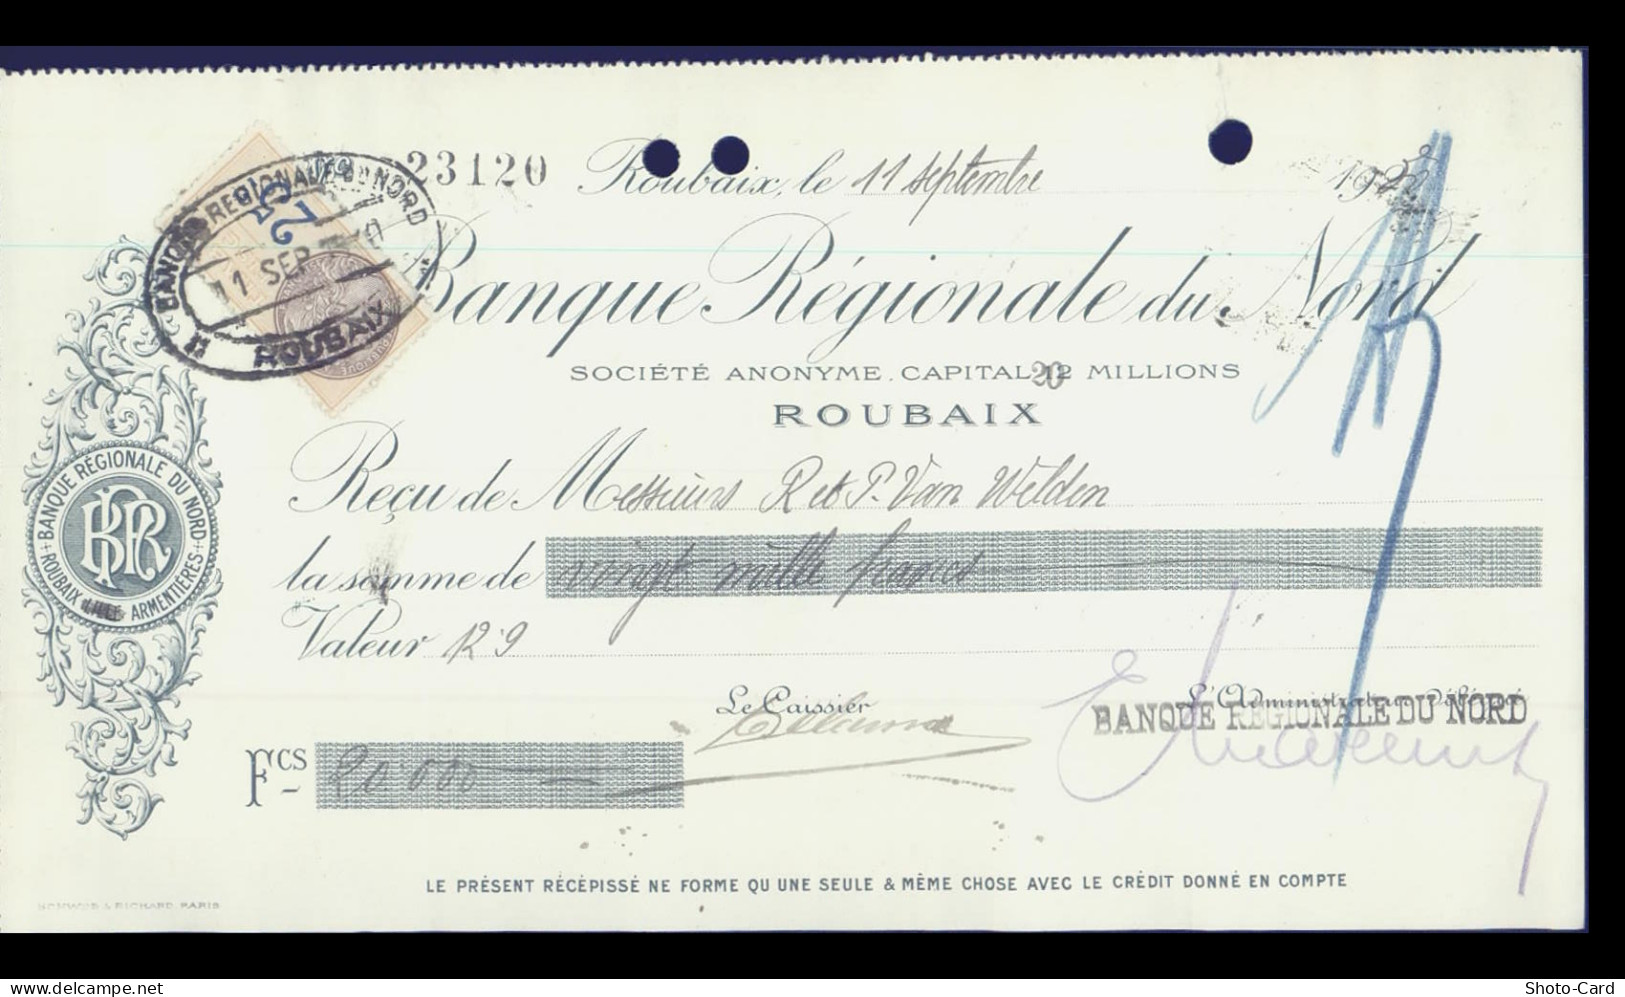 23120
Roubaix, le 11 septembre 192
BANQUE RÉGIONALE DU NORD
11 SEP
ROUBAIX
25
Banque Régionale du Nord
SOCIÉTÉ ANONYME. CAPITAL 20 MILLIONS
ROUBAIX
Reçu de Messieurs R et P. Van Welden
la somme de vingt mille francs
Valeur 12 9
BANQUE RÉGIONALE DU NORD
ROUBAIX LILLE ARMENTIÈRES
BRN
Le Caissier
L'Administrateur Délégué
BANQUE REGIONALE DU NORD
Fcs 20.000
LE PRÉSENT RÉCÉPISSÉ NE FORME QU UNE SEULE & MÊME CHOSE AVEC LE CRÉDIT DONNÉ EN COMPTE
& RICHARD. PARIS
www.delcampe.net
Shoto-Card